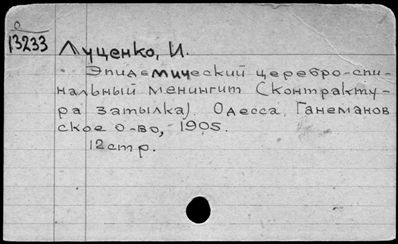 0
13233
Луценко, И.
Эпидемический церебро-спи-
нальный менингит (контракту-
ра затылка). Одесса, Ганеманов
ское о-во, 1905.
12 стр.